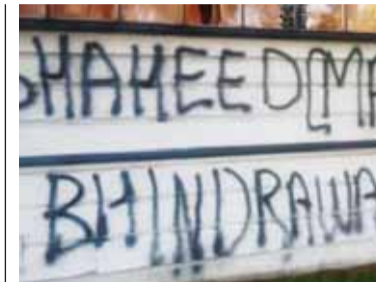 SHAHEED [MA
BHINDRAWA